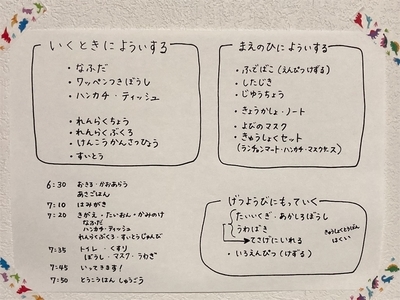 いくときによういするもの
・なふだ
・ワッペンつきぼうし
・ハンカチ・ティッシュ
・れんらくちょう
・れんらくぶくろ
・けんこうかんさつひょう
・すいとう
まえのひによういする
・ふでばこ（えんぴつけずる）
・したじき
・じゆうちょう
・きょうかしょ・ノート
・よびのマスク
・きゅうしょくセット
（ランチョンマート・ハンカチ・マスクケース）
6:30 おきる・かおあらう
あさごはん
7:10 はみがき
7:20 きがえ・たいおん・かみのけ
なふだ
ハンカチ・ティッシュ
れんらくぶくろ・すいとうじゅんび
7:35 トイレ・くすり
ぼうし・マスク・うわぎ
7:45 いってきます！
7:50 とうこうはん しゅうごう
げつようびにもっていく
たいいくぎ・あかしろぼうし
うわばき
てさげにいれる
・いろえんぴつ（けずる）
きゅうしょくとうばん
はくい